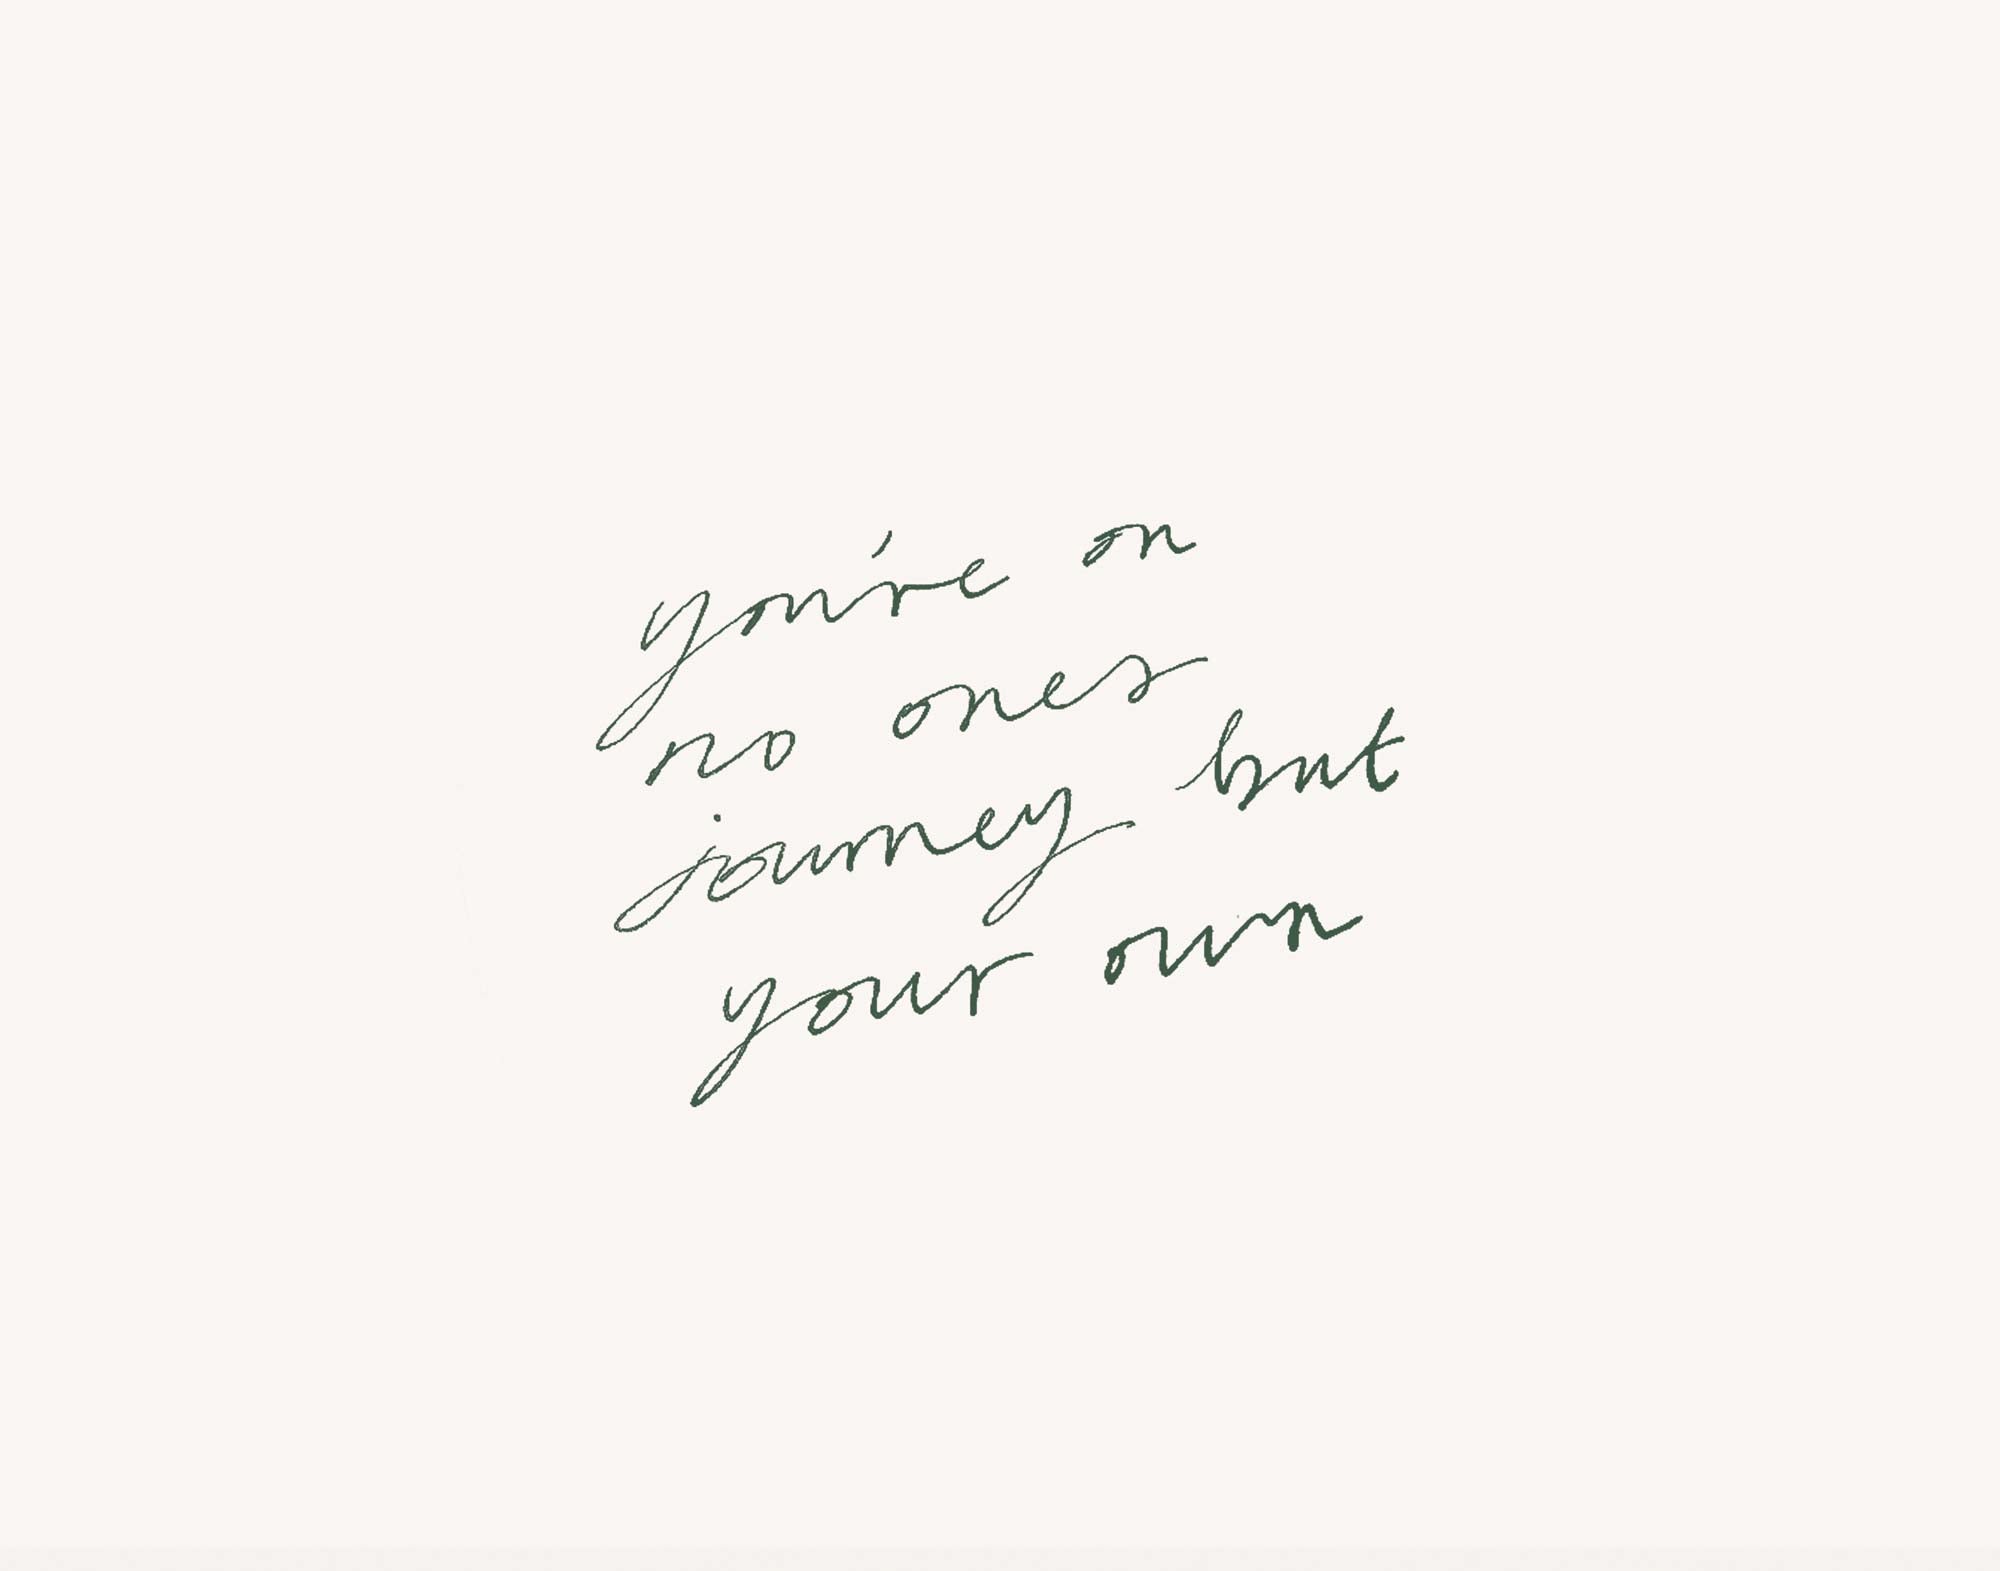 you're on
no ones
journey but
your own